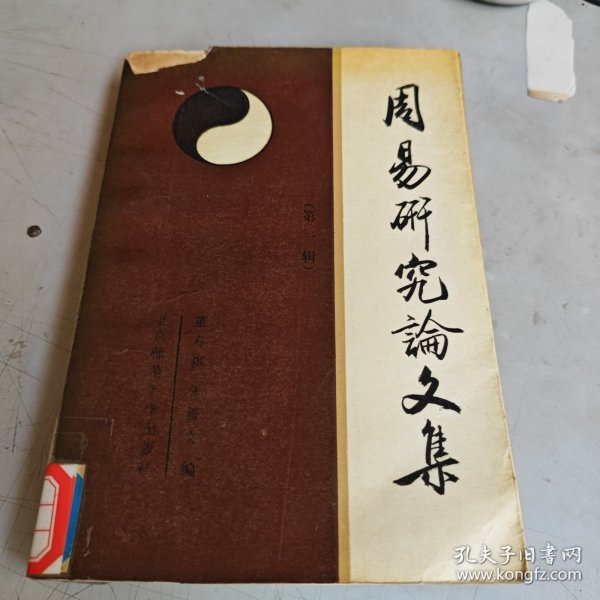 周易研究論文集
(第一辑)
黄寿祺 张善文 编
北京师范大学出版社
孔夫子旧书网
www.kongfz.com